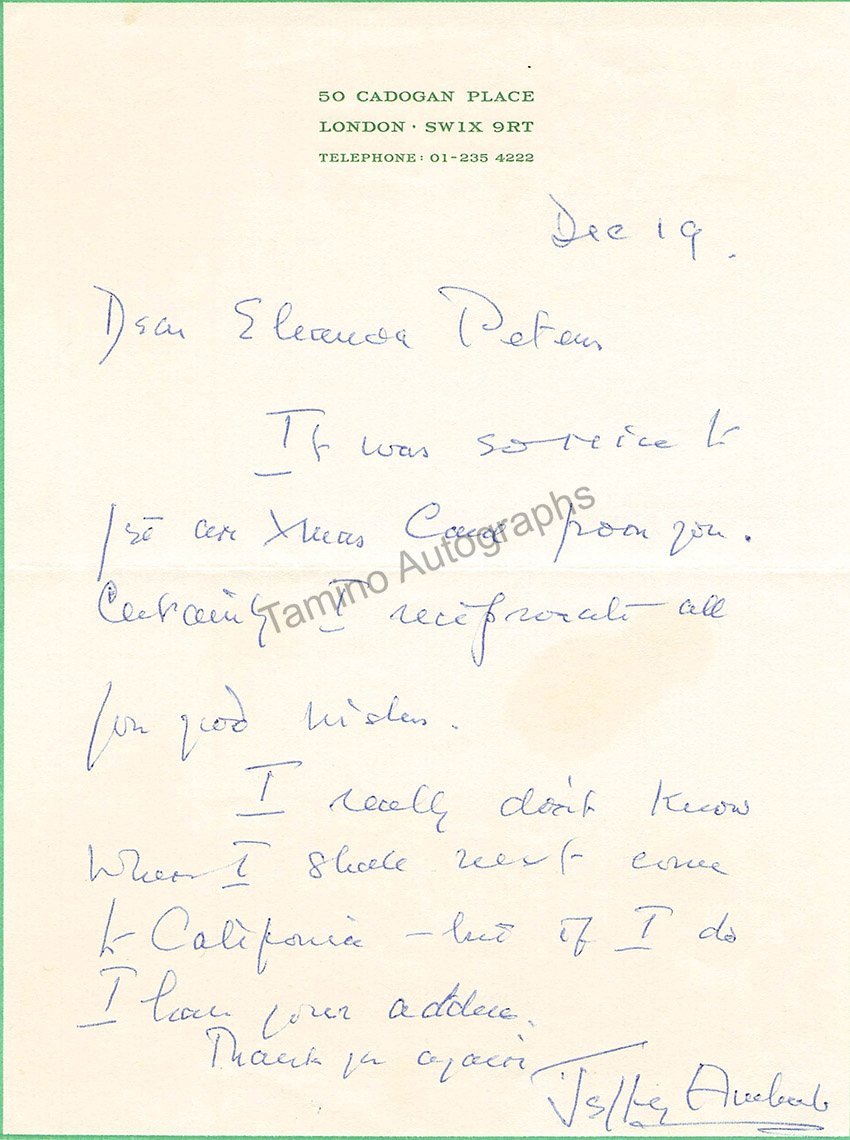 50 CADOGAN PLACE
LONDON · SW1X 9RT
TELEPHONE: 01-235 4222
Dec 19.
Dear Eleanor Peters
It was so nice to
get an Xmas Card from you.
Certainly I reciprocate all
your good wishes.
I really don't know
when I shall next come
to California - but if I do
I have your address.
Thank you again
Tamino Autographs